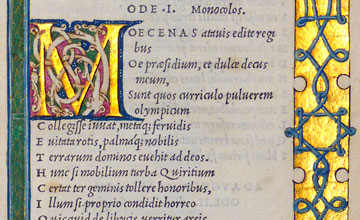 ODE · I. Monocolos.
MOECENAS atauis edite regi
bus
Oe præsidium, et dulce decus
meum.
Sunt quos curriculo puluerem
olympicum
Collegisse iuuat, metaq; feruidis
Euitata rotis, palmaq; nobilis
Terrarum dominos euehit ad deos.
Hunc si mobilium turba Quiritium
Certat ter geminis tollere honoribus,
Illum si proprio condidit horreo
Quicquid de libycis uerritur areis